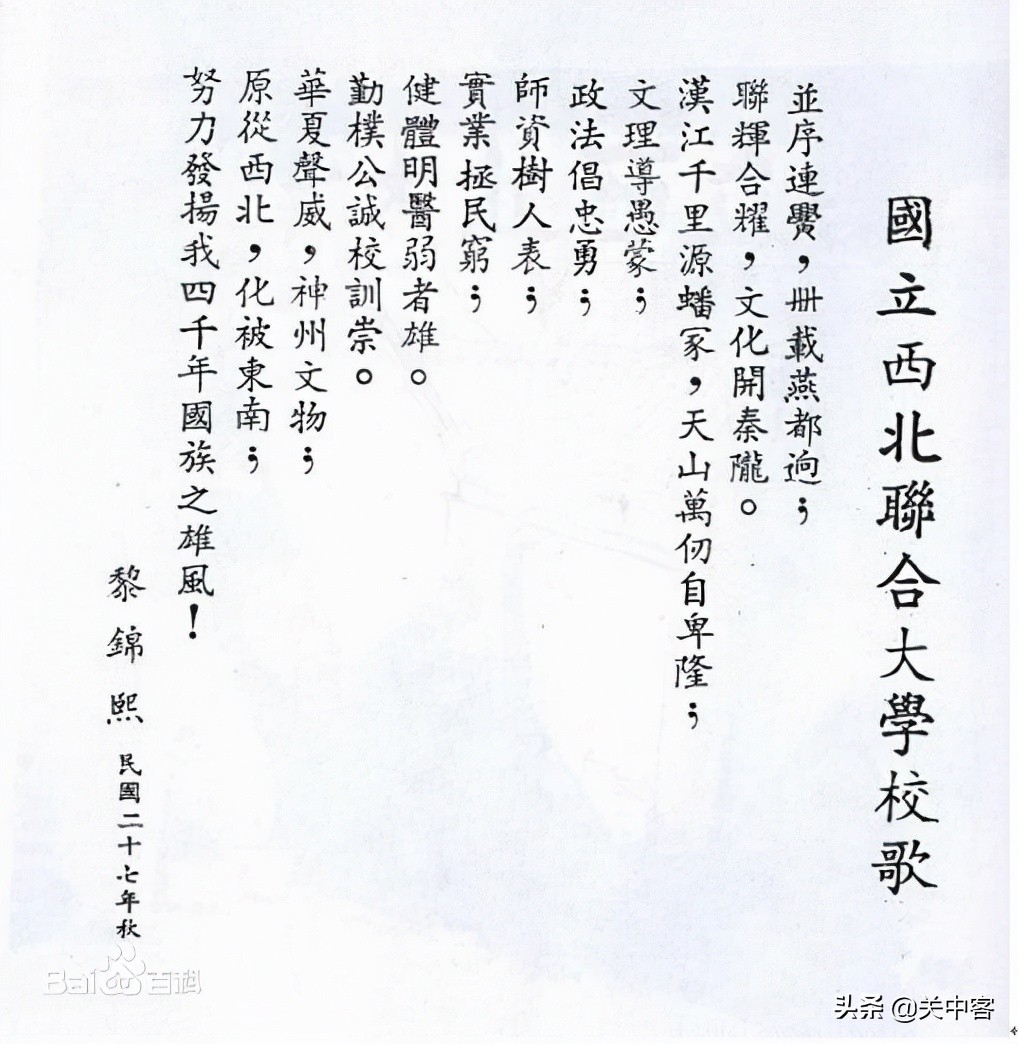 國立西北聯合大學校歌
並序連黌，卌載燕都迥；
聯輝合耀，文化開秦隴。
漢江千里源蟠冢，天山萬仞自卑隆；
文理導愚蒙；
政法倡忠勇；
師資樹人表；
實業拯民窮；
健體明醫弱者雄。
勤樸公誠校訓崇。
華夏聲威，神州文物；
原從西北，化被東南；
努力發揚我四千年國族之雄風！
黎錦熙 民國二十七年秋
Bai百科
头条 @关中客